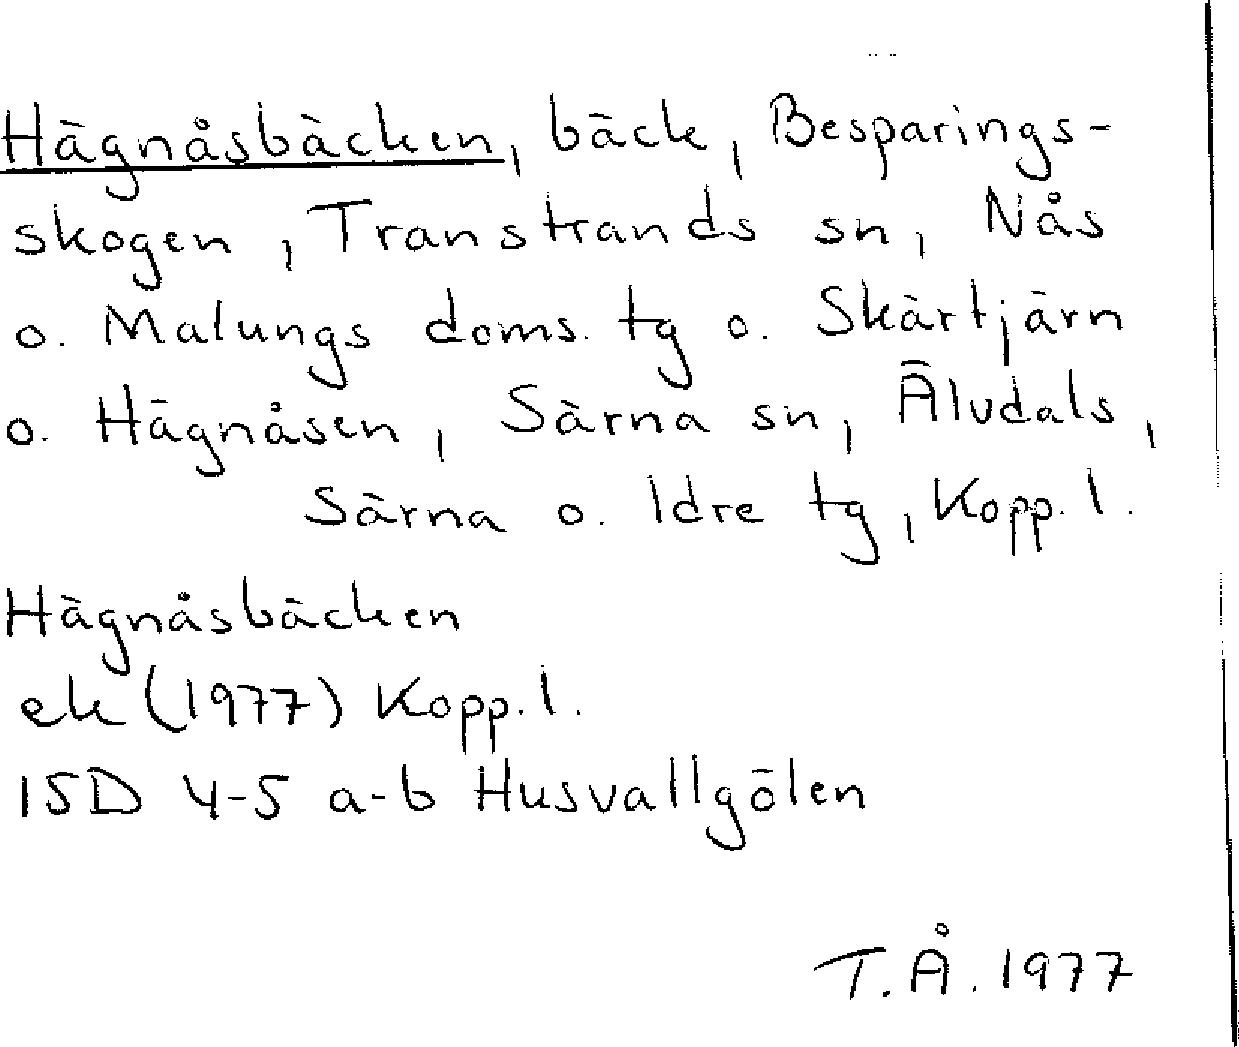 Hägnåsbäcken, bäck, Besparings-
skogen, Transtrands sn, Nås
o. Malungs doms. tg o. Skärtjärn
o. Hägnåsen, Särna sn, Älvdals,
Särna o. Idre tg, Kopp. l.
Hägnåsbäcken
ek (1977) Kopp. l.
15D 4-5 a-b Husvallgölen
T.Å. 1977